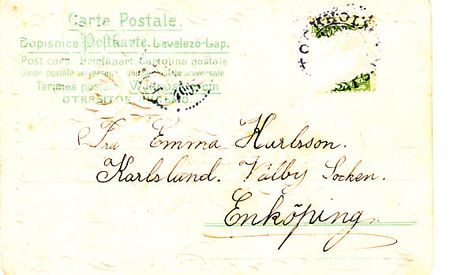 Carte Postale.
Dopisnice Postkarte. Levelező-Lap.
Post card. Briefkaart. Cartolina postale
Union postale universelle. Union postale universelle
Tarjetas postales.
Fru Emma Karlsson.
Karlslund. Välby Socken.
Enköping.